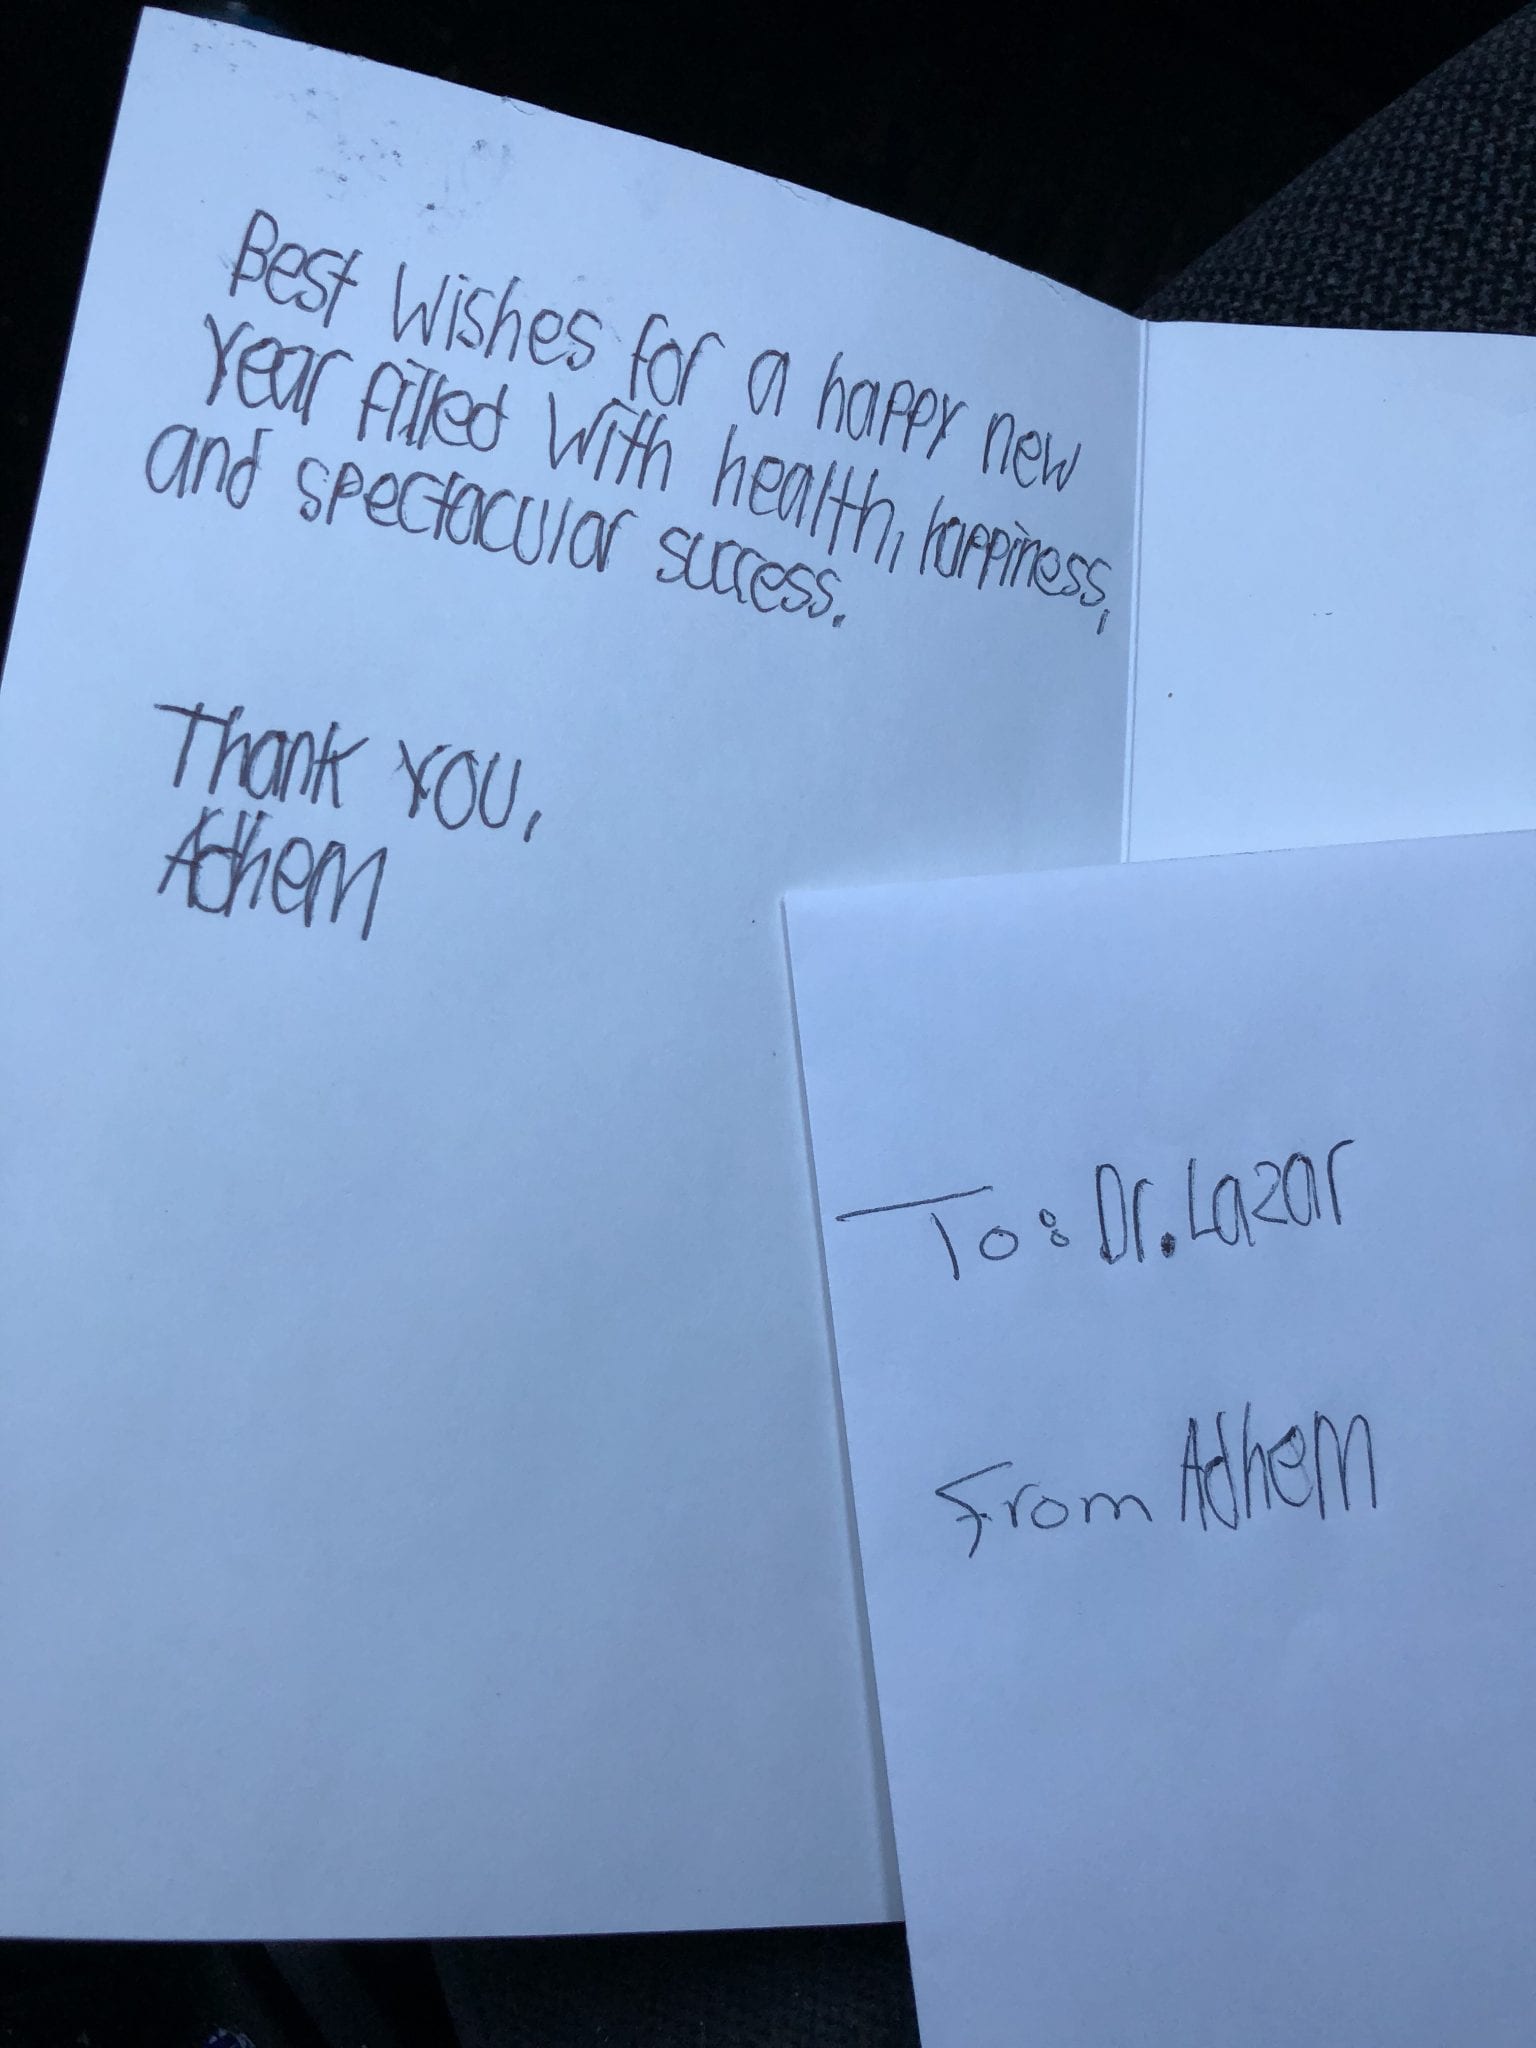 Best Wishes for a happy new
Year filled With health, happiness,
and spectacular success.
Thank YOU,
Adhem
To: Dr. Lazar
From Adhem